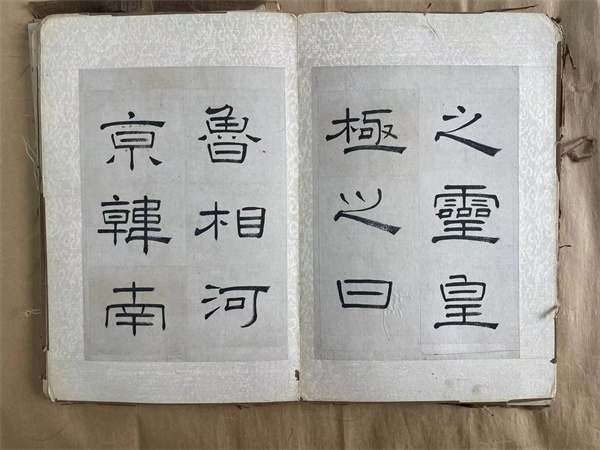 之靈皇
極之日
魯相河
京韓南